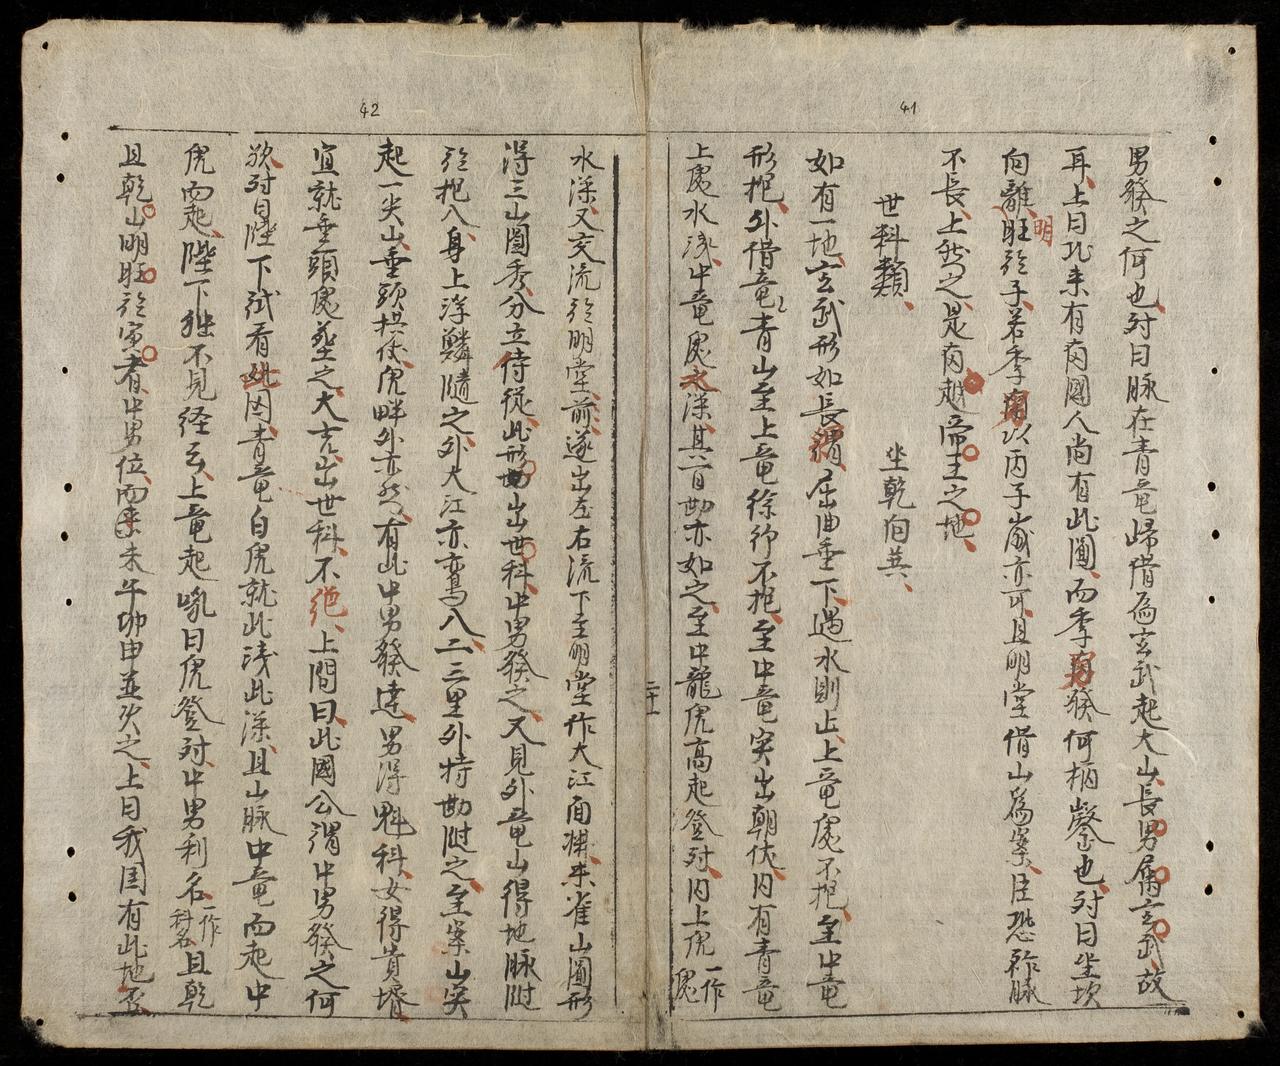 41
男發之何也対曰脉在青竜㱕借爲玄武起大山長男屬玄武故
耳上曰北来有两國人尚有此圖而季男發何柄鑿也対曰坐坎
向離明旺於子若季男以丙子歳亦可且明堂借山爲案臣恐祚脉
不長上然之是两趙帝王之地
世科類 坐乾向巽
如有一地玄武形如長獺屈曲垂下遇水則止上竜處不抱至中竜
形抱外借竜青山至上竜徐行不抱至中竜突出朝伏内有青竜
上處水浅中竜處之深其一百亦如之至中龍虎高起登対内上虎一作處
二十一
42
水深又交流於明堂前遂出左右流下至明堂作大江面横朱雀山圓形
得三山圓秀分立侍從此形出世科中男發之又見外竜山得地脉附
於抱入身上浮鱗隨之外大江亦入二三里外特附之至案山突
起一尖山垂頭拱伏虎畔外亦然有此中男發達男得魁科女得貴壻
宜就垂頭處塟之大吉出世科不絶上問曰此國公謂中男發之何
欤対曰陛下試看此因青竜白虎就此浅此深且山脉中竜而起中
虎而起陛下独不見経云上竜起吼曰虎登対中男利名一作科名且乾
且乾山明旺於寅者中男位而来未午卯申並次之上曰我国有此地否